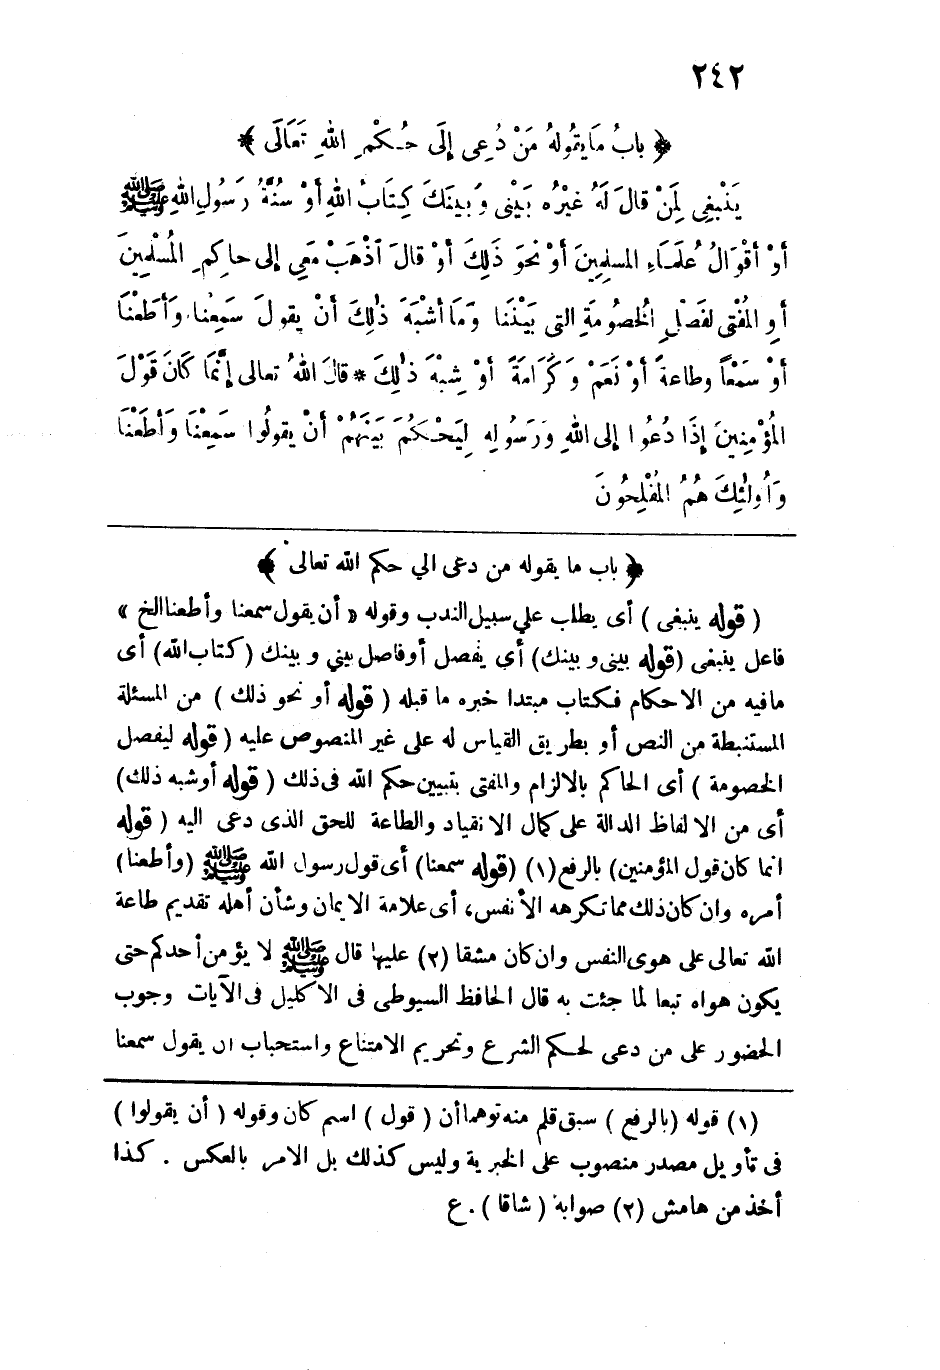 ٢٤٢
﴿ بابُ مَا يَقُولهُ مَنْ دُعِى إِلَى حُـكْمِ اللهِ تَعَالَى ﴾
يَنْبغِى لِمَنْ قالَ لَهُ غيْرُه بَيْنِى وَبينَكَ كِتَابُ اللهِ أوْ سُنَّةُ رَسُولِ اللهِ ﷺ
أوْ أقْوَالُ عُلَمَاءِ المسلِمِينَ أوْ نحوَ ذَلِكَ أوْ قالَ اذْهَبْ مَعِى إلى حاكِمِ المُسْلِمِينَ
أوِ المُفْتِى لفَصْلِ الخُصومَةِ التى بَيْنَنا وَمَا أشْبَهَ ذٰلِكَ أنْ يقولَ سَمِعْنا وَأطَعْنَا
أوْ سَمْعاً وطاعةً أوْ نَعَمْ وَكَرَامَةً أوْ شِبْهَ ذٰلِكَ * قالَ اللهُ تعالى إنَّمَا كَانَ قَوْلَ
المُؤْمِنِينَ إذَا دُعُوا إلى اللهِ وَرَسُولِهِ لِيَحْـكُمَ بَيْنَهُمْ أنْ يقولُوا سَمِعْنَا وَأطَعْنَا
وَأُولٰئِكَ هُمُ المُفْلِحُونَ
﴿ باب ما يقوله من دعى الي حكم الله تعالى ﴾
( قوله ينبغى ) أى يطلب علي سبيل الندب وقوله « أن يقول سمعنا وأطعنا الخ »
فاعل ينبغى (قوله بينى وبينك) أي يفصل أو فاصل بيني وبينك (كتاب الله) أى
مافيه من الاحكام فـكتاب مبتدا خبره ما قبله ( قوله أو نحو ذلك ) من المسئلة
المستنبطة من النص أو بطريق القياس له على غير المنصوص عليه ( قوله ليفصل
الخصومة ) أى الحاكم بالالزام والمفتى بتبيين حكم الله فى ذلك ( قوله أوشبه ذلك)
أى من الالفاظ الدالة على كمال الانقياد والطاعة للحق الذى دعى اليه ( قوله
انما كان قول المؤمنين) بالرفع(١) (قوله سمعنا) أى قول رسول الله ﷺ (وأطعنا)
أمره وان كان ذلك مما تكرهه الأنفس، أى علامة الايمان وشأن أهله تقديم طاعة
الله تعالى على هوى النفس وان كان مشقا (٢) عليها قال ﷺ لا يؤمن أحدكم حتى
يكون هواه تبعا لما جئت به قال الحافظ السيوطى فى الاكليل فى الآيات وجوب
الحضور على من دعى لحـكم الشرع وتحريم الامتناع واستحباب ان يقول سمعنا
(١) قوله (بالرفع ) سبق قلم منه توهما أن ( قول ) اسم كان وقوله ( أن يقولوا )
فى تأويل مصدر منصوب على الخبرية وليس كذلك بل الامر بالعكس . كذا
أخذ من هامش (٢) صوابه ( شاقا ) . ع